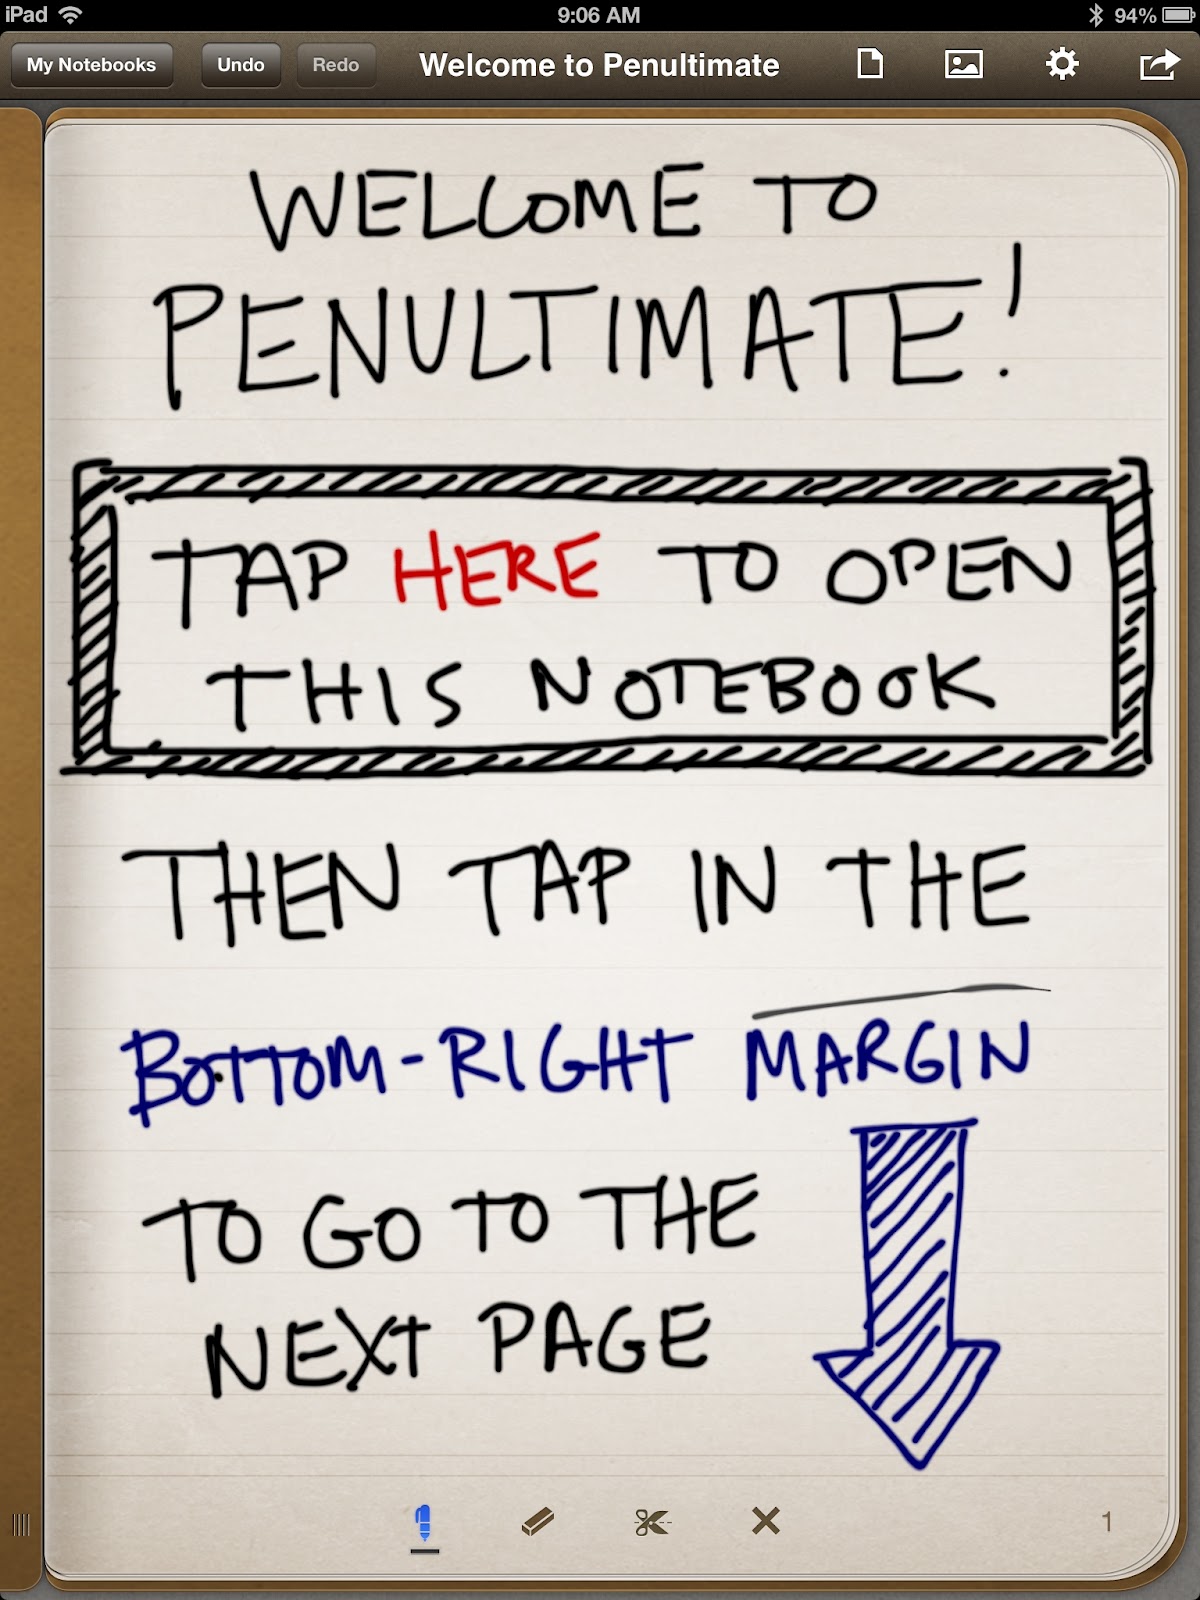 iPad 9:06 AM 94%
My Notebooks Undo Redo Welcome to Penultimate
WELCOME TO
PENULTIMATE!
TAP HERE TO OPEN
THIS NOTEBOOK
THEN TAP IN THE
BOTTOM-RIGHT MARGIN
TO GO TO THE
NEXT PAGE
1